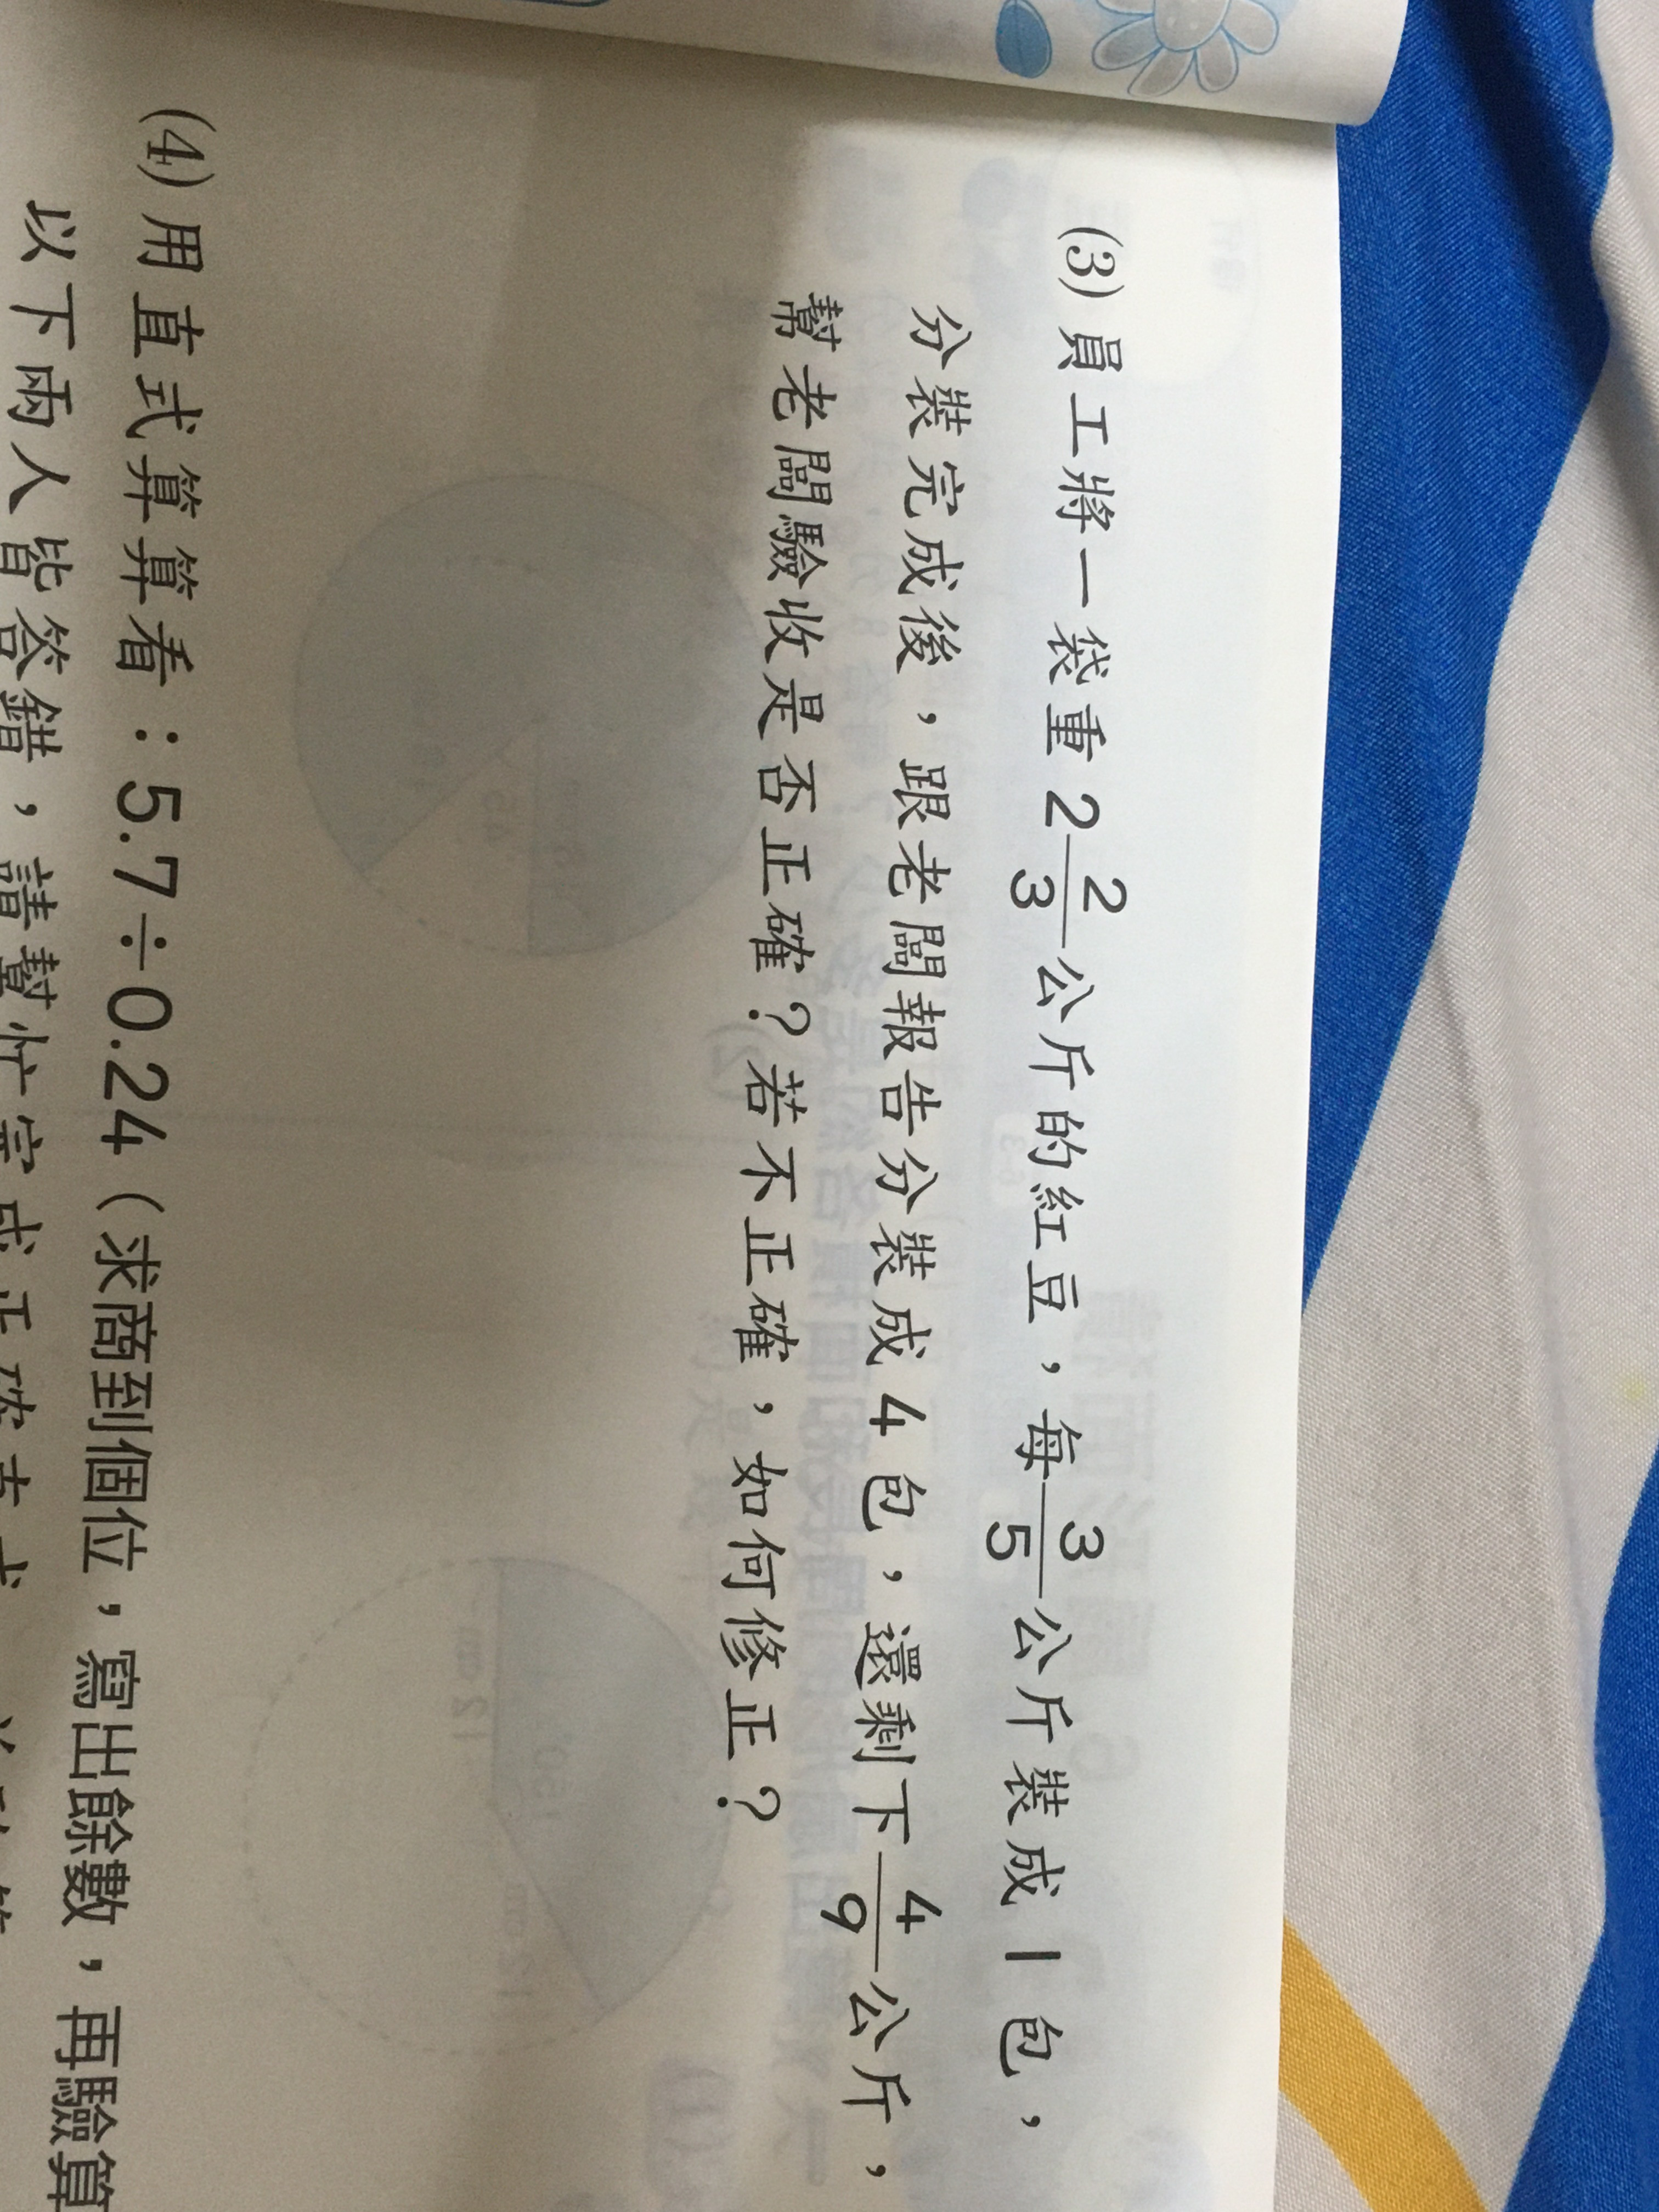 (3) 員工將一袋重 2 2/3 公斤的紅豆，每 3/5 公斤裝成 1 包，
分裝完成後，跟老闆報告分裝成 4 包，還剩下 4/9 公斤，
幫老闆驗收是否正確？若不正確，如何修正？
(4) 用直式算算看：5.7÷0.24（求商到個位，寫出餘數，再驗算
以下兩人皆答錯，請幫忙完成正確直式